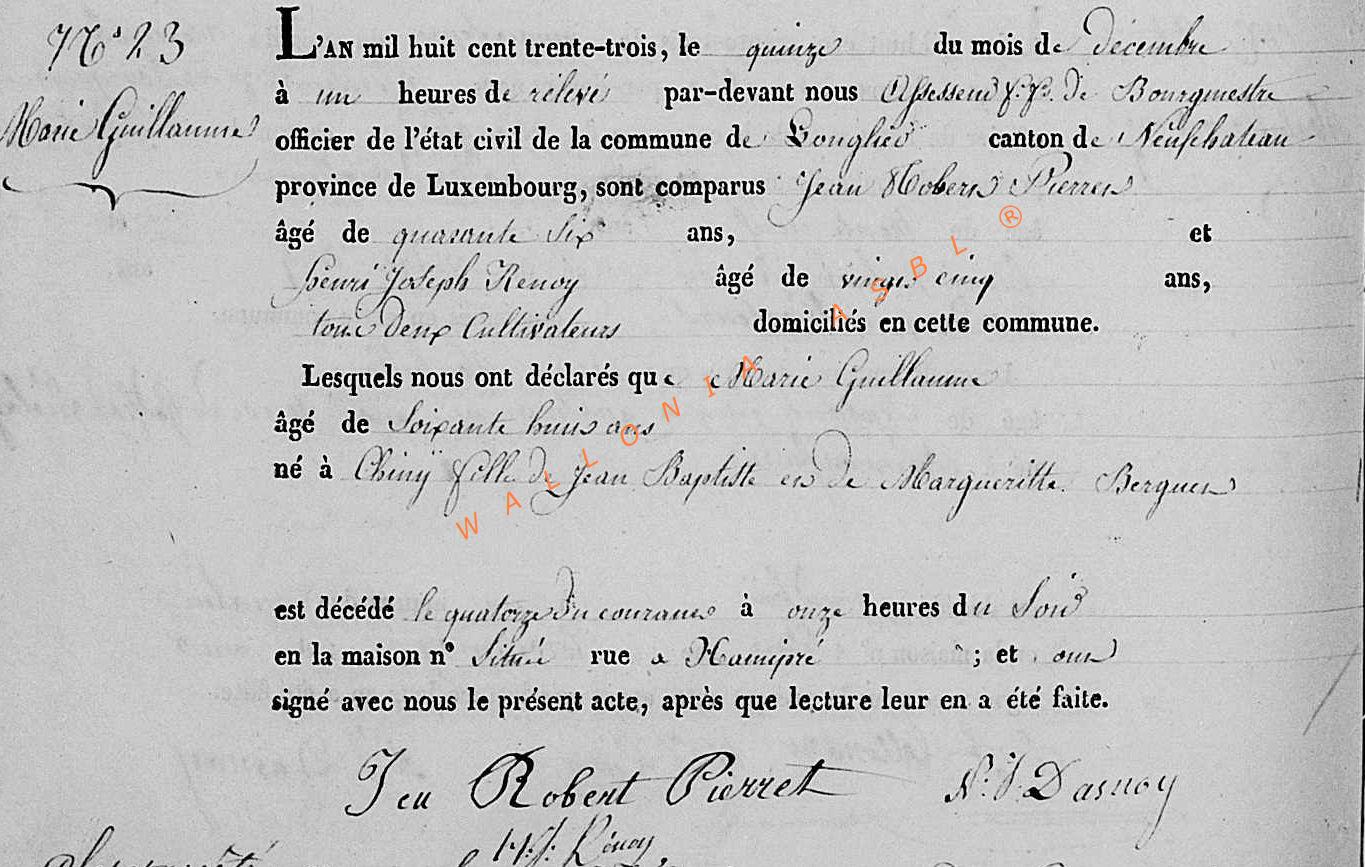 N° 23
Marie Guillaume
L'AN mil huit cent trente-trois, le quinze du mois de décembre
à un heures de rélévé par-devant nous Assesseur f.f. de Bourgmestre
officier de l'état civil de la commune de Longlier canton de Neufchateau
province de Luxembourg, sont comparus Jean Robert Pierret
âgé de quarante Six ans, et
henri Joseph Renoy âgé de vingt cinq ans,
tous deux Cultivateurs domiciliés en cette commune.
Lesquels nous ont déclarés que Marie Guillaume
âgé de Soixante huit ans
né à Chiny fille de Jean Baptiste et de Marguéritte Berguet
est décédé le quatorze du courant à onze heures du Soir
en la maison n° Située rue a Hamipré ; et ont
signé avec nous le présent acte, après que lecture leur en a été faite.
Jen Robert Pierret N. J. Dasnoy
H. J. Rénoy
WALLONIA ASBL ®